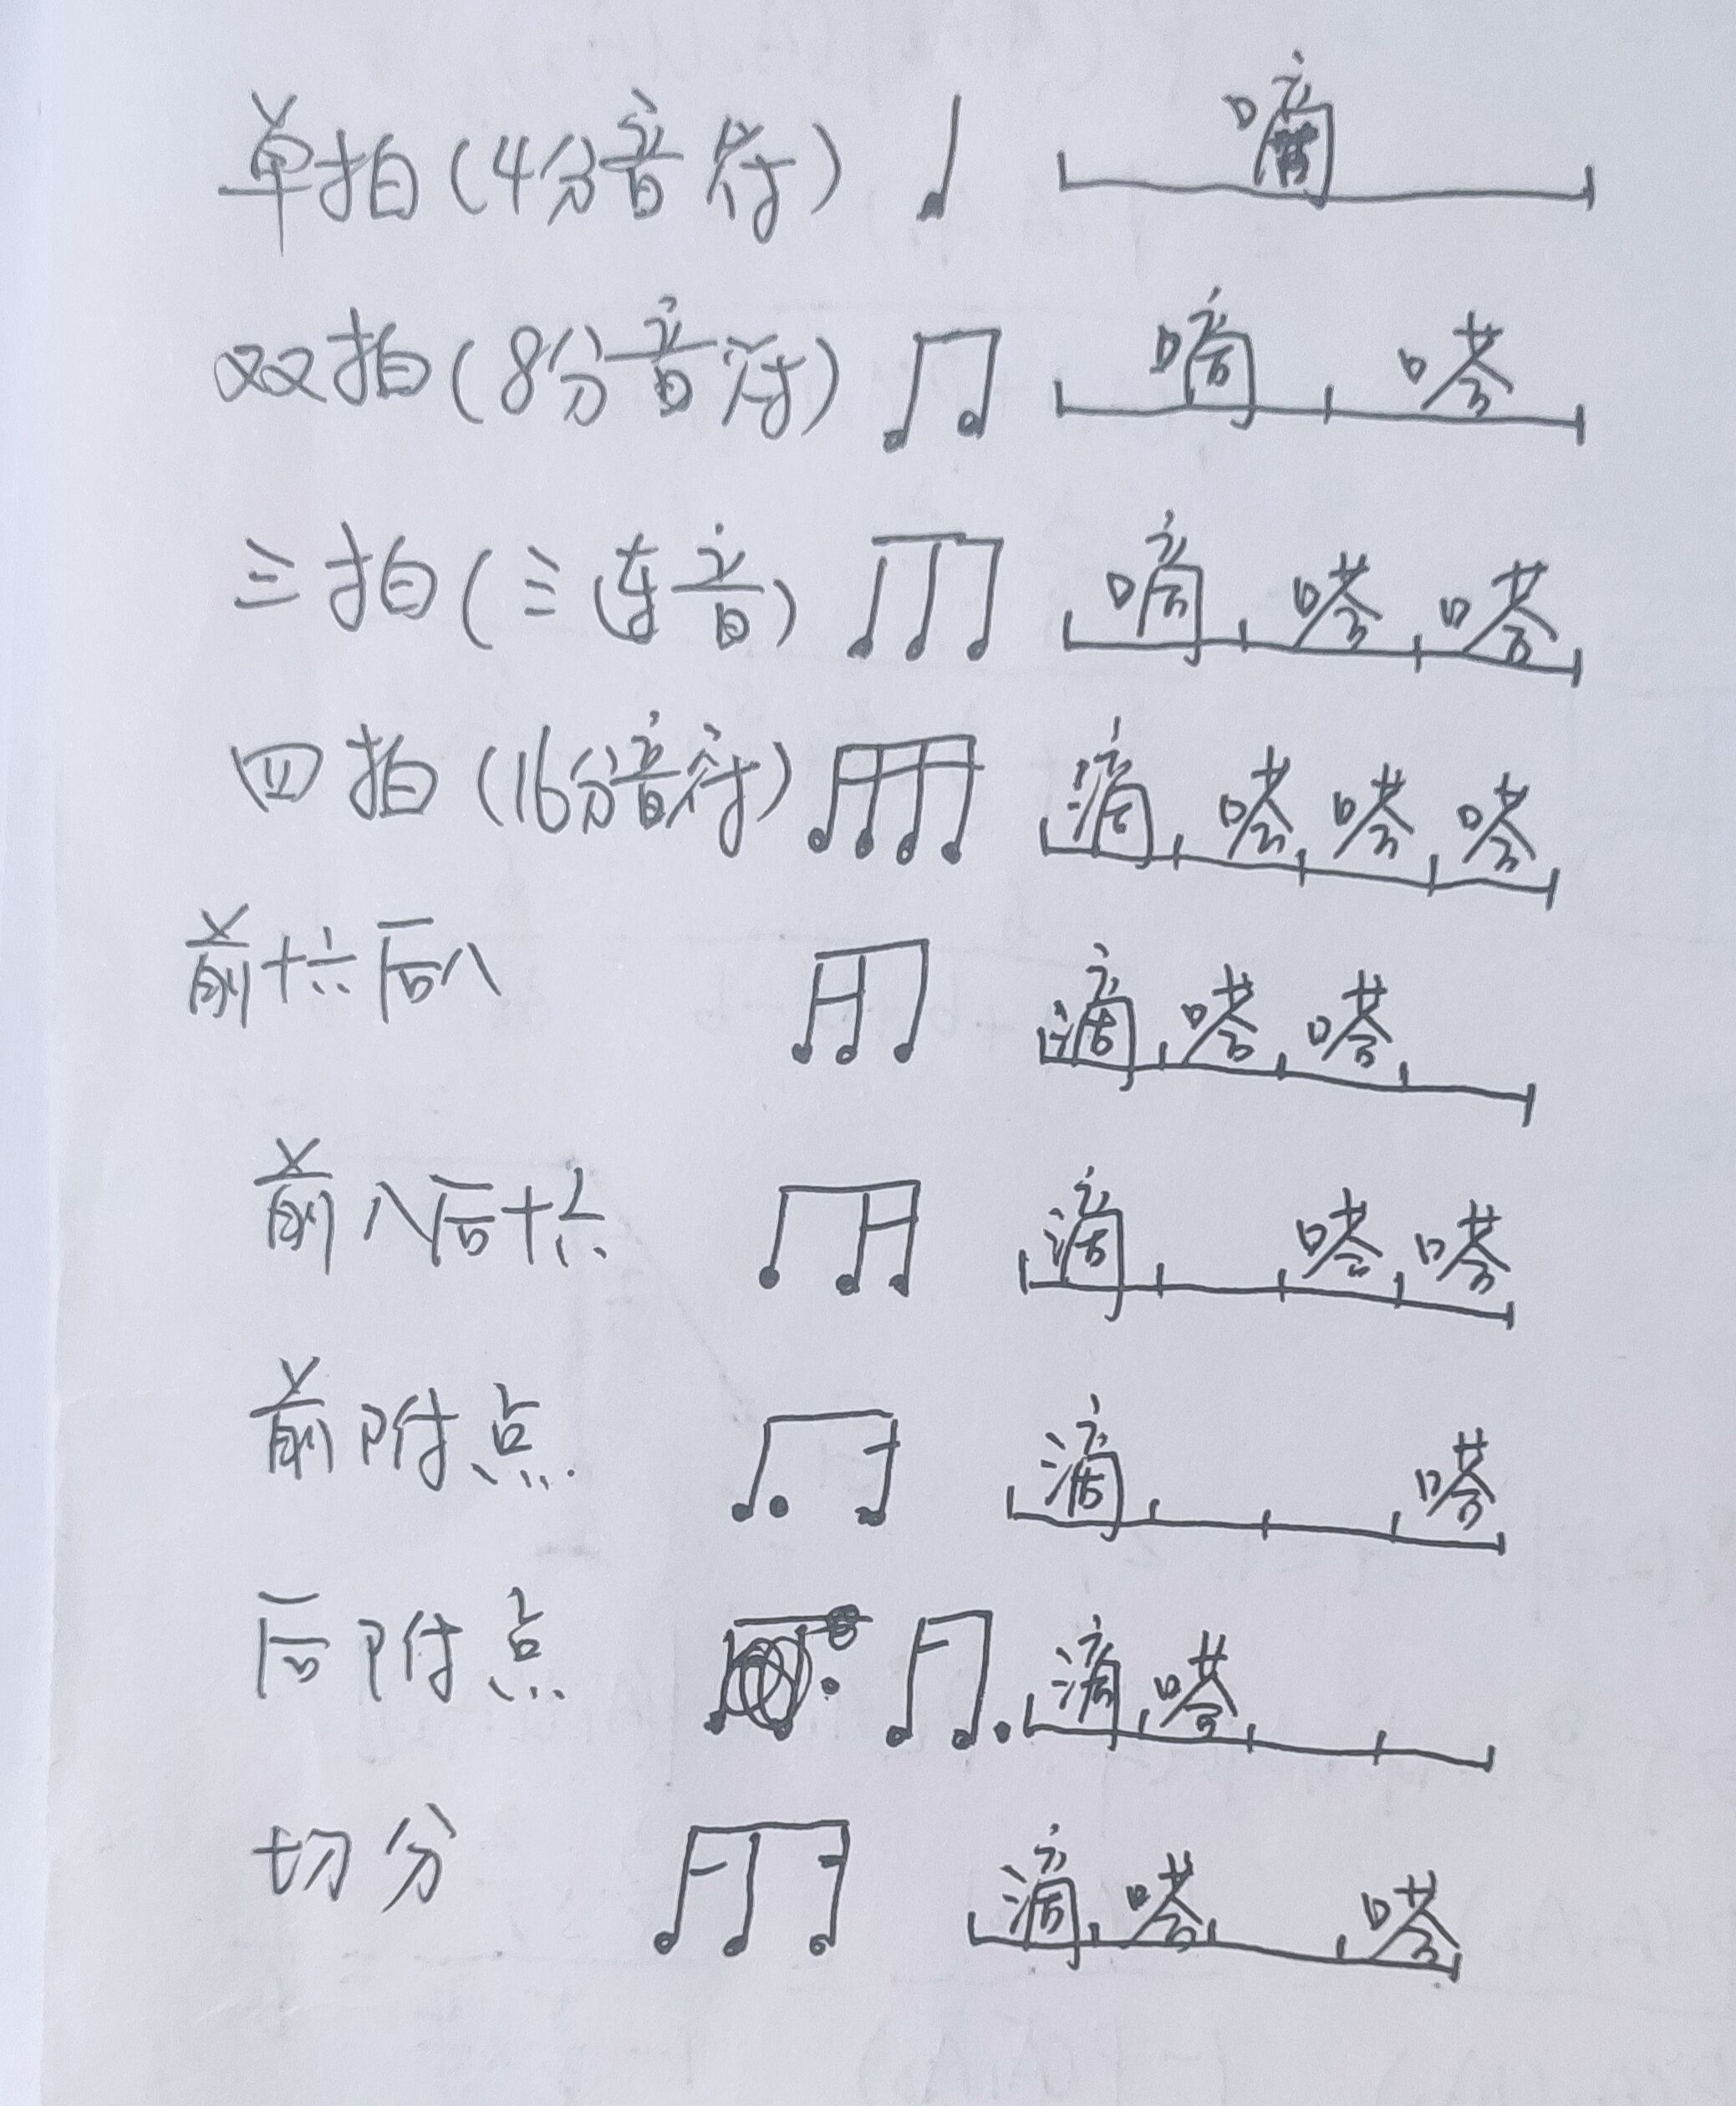 单拍(4分音符) 嘀
双拍(8分音符) 嘀 嗒
三拍(三连音) 嘀 嗒 嗒
四拍(16分音符) 滴 嗒 嗒 嗒
前十六后八 滴 嗒 嗒
前八后十六 滴 嗒 嗒
前附点 滴 嗒
后附点 滴 嗒
切分 滴 嗒 嗒